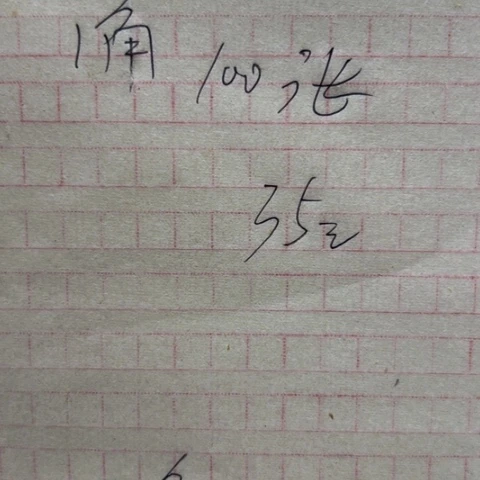 1角 100张
35元